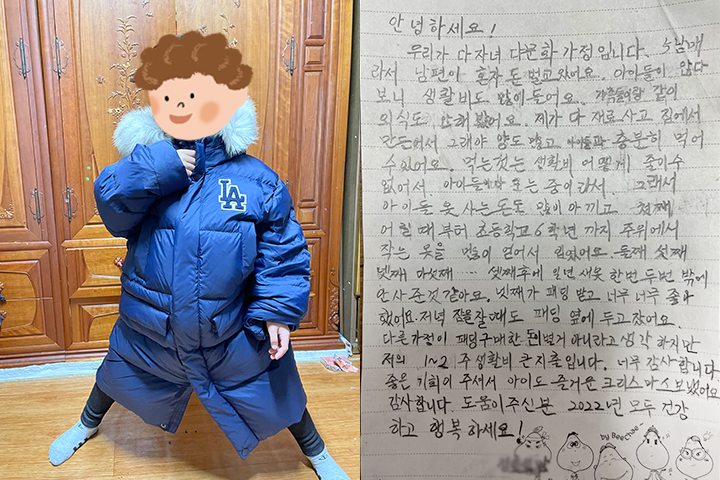 LA
안녕하세요!
우리가 다자녀 다문화 가정입니다. 5남매
라서 남편이 혼자 돈 벌고 있어요. 아이들이 많다
보니 생활비도 많이 들어요. 가족들이랑 같이
외식도 안해 봤어요. 제가 다 재료 사고 집에서
만들어서 그래야 양도 많고 아이들과 충분히 먹어
수 있어요. 먹는것은 생활비 어떻게 줄이수
없어서 아이들이 크는 중이라서 그래서
아이들 옷 사는 돈도 많이 아끼고 첫째
어릴때부터 초등학교 6학년 까지 주위에서
작은 옷을 많이 얻어서 입었어요. 둘째 셋째
넷째 다섯째 셋째후에 일년 새옷 한번 두번 밖에
안 사준것 같아요. 넷째가 패딩 받고 너무 너무 좋아
했어요. 저녁 잠을 잘때도 패딩 옆에 두고 잤어요.
다른가정이 패딩구매한 돈이 별거 아니라고 생각 하지만
저희 1~2 주 생활비 큰지출입니다. 너무 감사합니다
좋은 기회이 주셔서 아이도 즐거운 크리스마스 보냈어요
감사합니다. 도움이주신분 2022년 모두 건강
하고 행복하세요!
by BeeChae